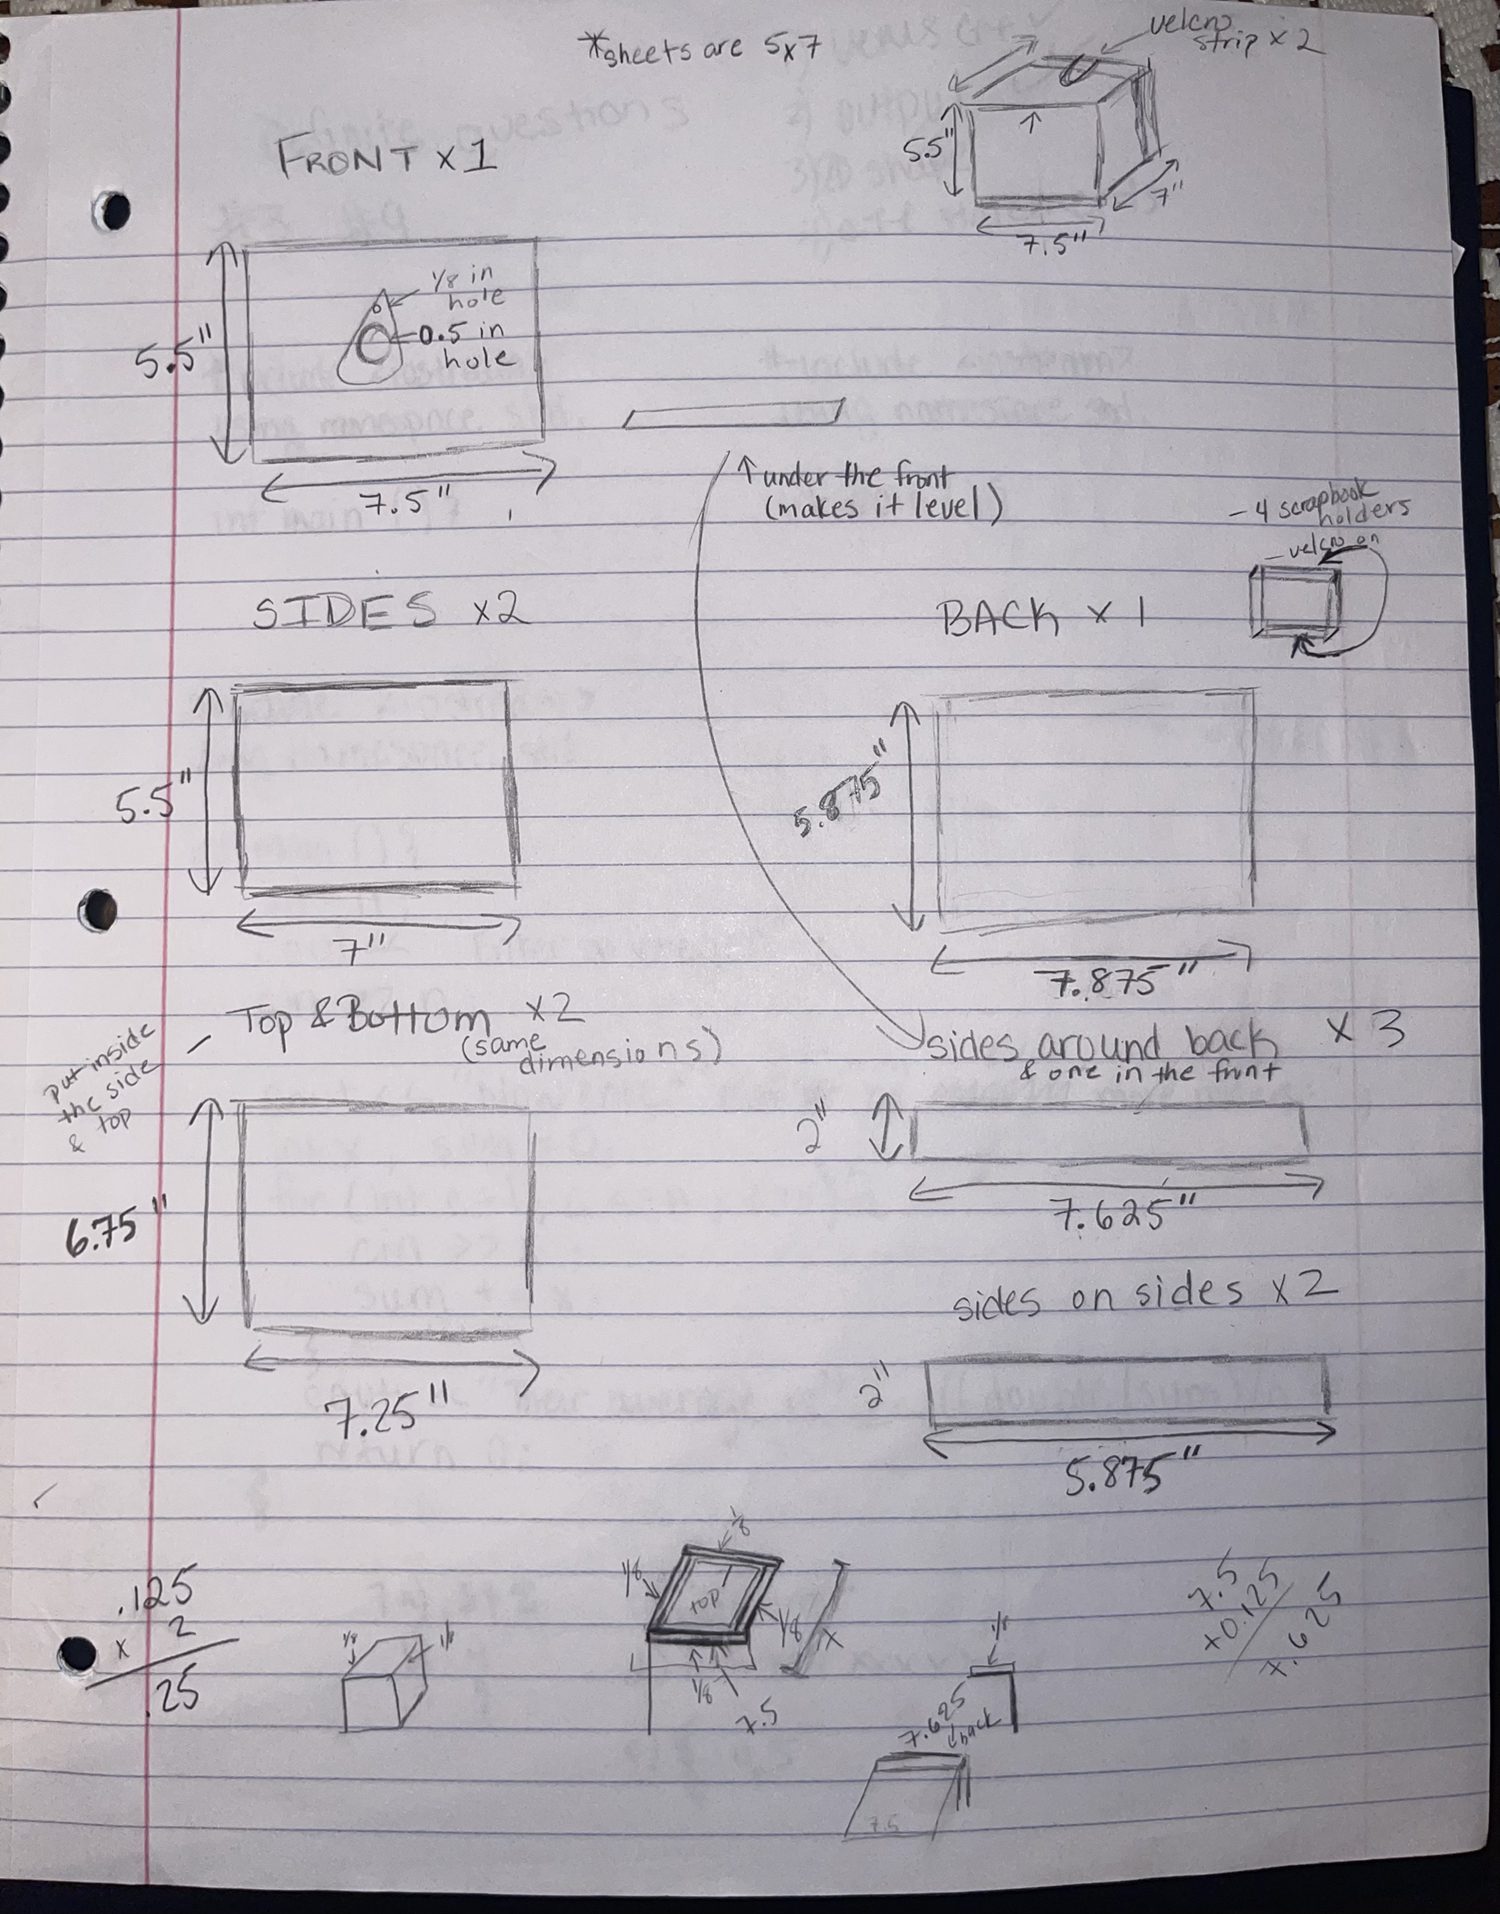 *sheets are 5x7
velcro
strip x 2
5.5"
7.5"
7"
FRONT x 1
1/8 in
hole
0.5 in
hole
5.5"
7.5"
↑ under the front
(makes it level)
- 4 scrapbook
holders
- velcro on
SIDES x2
5.5"
7"
BACK x 1
5.875"
7.875"
put inside
the side
& top
- Top & Bottom x2
(same
dimensions)
6.75"
7.25"
sides around back x 3
& one in the front
2"
7.625"
sides on sides x 2
2"
5.875"
.125
x 2
.25
1/8
1/8
1/8
1/8
top
1/8
1/8
7.5
x
1/8
7.625
back
7.5
7.5
+0.125
7.625